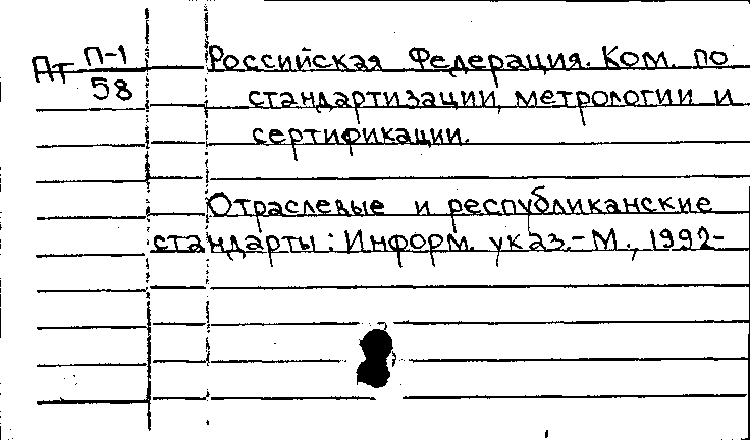 Пт П-1/58
Российская Федерация. Ком. по
стандартизации, метрологии и
сертификации.
Отраслевые и республиканские
стандарты: Информ. указ.-М., 1992-